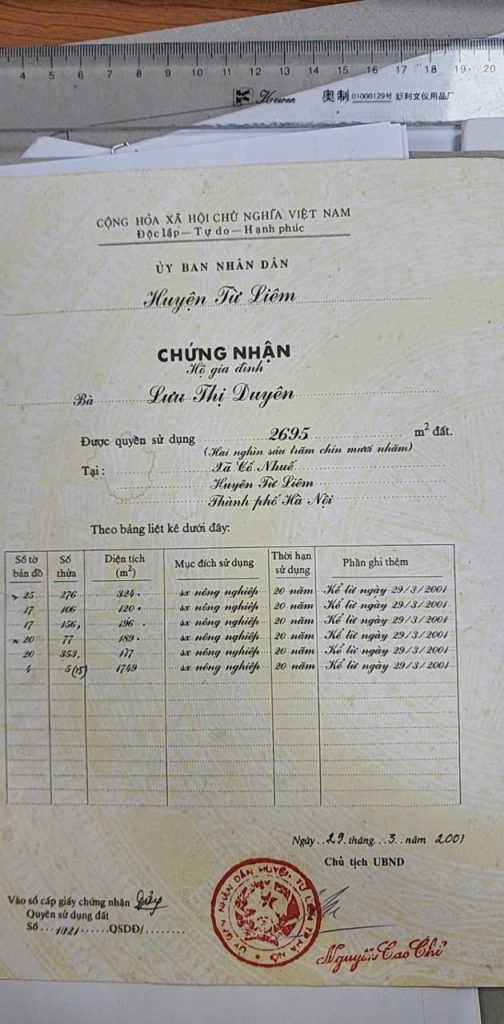 4 5 6 7 8 9 10 11 12 13 14 15 16 17 18 19 20
Kewen 奥制 01000129号 新利文仪用品厂
CỘNG HÒA XÃ HỘI CHỦ NGHĨA VIỆT NAM
Độc lập — Tự do — Hạnh phúc
ỦY BAN NHÂN DÂN
Huyện Từ Liêm
CHỨNG NHẬN
Hộ gia đình
Bà Lưu Thị Duyên
Được quyền sử dụng 2695 m² đất.
(Hai nghìn sáu trăm chín mươi nhăm)
Tại : Xã Cổ Nhuế
Huyện Từ Liêm
Thành phố Hà Nội
Theo bảng liệt kê dưới đây:
Số tờ bản đồ Số thửa Diện tích (m²) Mục đích sử dụng Thời hạn sử dụng Phần ghi thêm
25 276 324 sx nông nghiệp 20 năm Kể từ ngày 29/3/2001
17 106 120 sx nông nghiệp 20 năm Kể từ ngày 29/3/2001
17 156 196 sx nông nghiệp 20 năm Kể từ ngày 29/3/2001
20 77 189 sx nông nghiệp 20 năm Kể từ ngày 29/3/2001
20 353 177 sx nông nghiệp 20 năm Kể từ ngày 29/3/2001
4 5(15) 1749 sx nông nghiệp 20 năm Kể từ ngày 29/3/2001
Ngày 29 tháng 3 năm 2001
Chủ tịch UBND
Vào sổ cấp giấy chứng nhận
Quyền sử dụng đất
Số 1921 QSDĐ/
ỦY BAN NHÂN DÂN HUYỆN TỪ LIÊM TP HÀ NỘI
Nguyễn Cao Chí